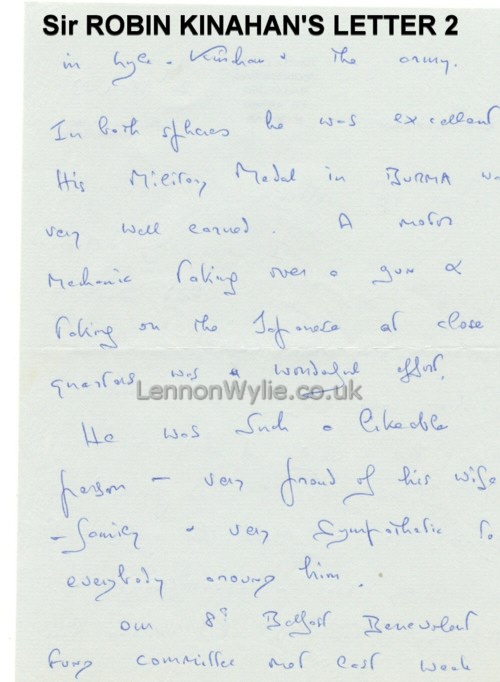 Sir ROBIN KINAHAN'S LETTER 2
in Lyle & Kinahan & the army.
In both spheres he was excellent
His Military Medal in BURMA wa
very well earned. A motor
Mechanic taking over a gun &
taking on the Japanese at close
quarters was a wonderful effort.
LennonWylie.co.uk
He was such a likeable
person - very proud of his wife
- family & very sympathetic to
everybody around him.
Our 8th Belfast Benevolent
Fund committee met last week